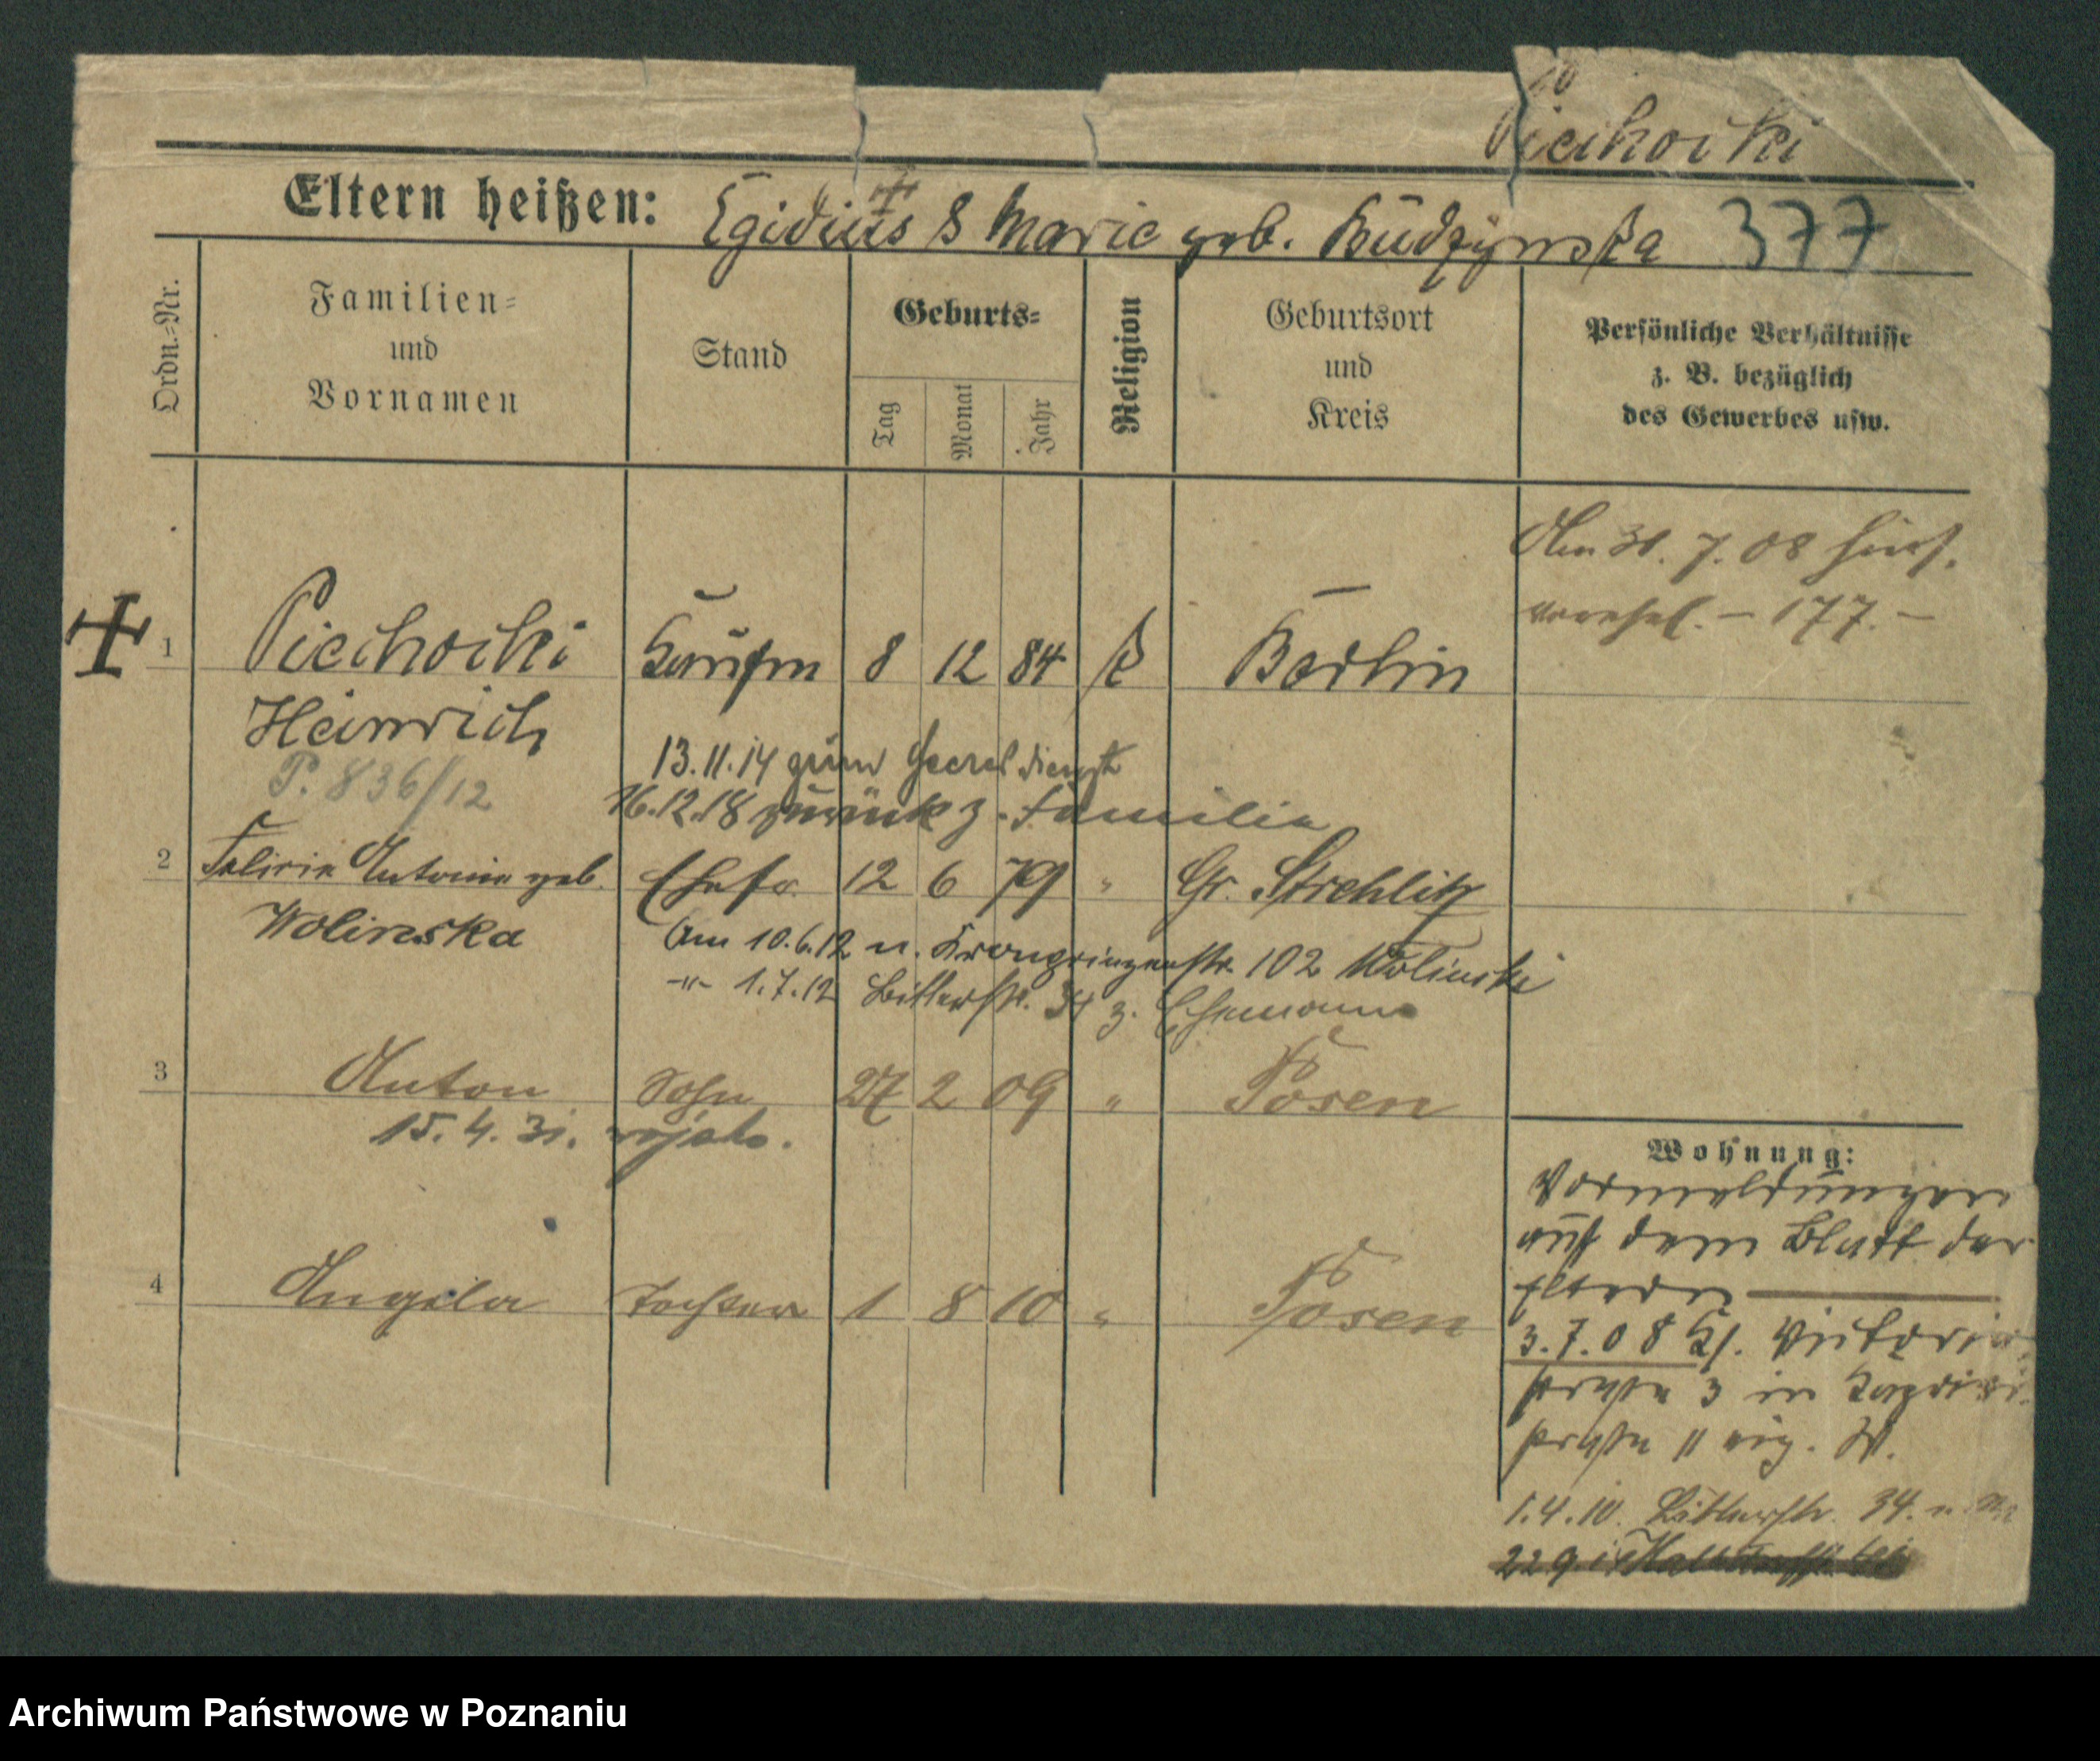 Piechocki
Eltern heißen: Egidius & Marie geb. Budzynska 377
Ordn.-Nr.
Familien-
und
Vornamen
Stand
Geburts-
Tag
Monat
Jahr
Religion
Geburtsort
und
Kreis
Persönliche Verhältnisse
z. B. bezüglich
des Gewerbes usw.
Am 30. 7. 08 hier
verehel. – 177. –
1 Piechocki Kaufm 8 12 84 K Berlin
Heinrich
P. 836/12
13.11.14 zum Heeresdienst
16.12.18 zurück z. Familie
2 Felicia Antonie geb. Ehefr. 12 6 79 " Gr. Strehlitz
Wolinska
Am 10.6.12 n. Kronprinzenstr. 102 Wolinski
-"- 1.7.12 Bitterstr. 34 z. Ehemann
3 Anton Sohn 27 2 09 " Posen
15. 4. 31.
4 Angela Tochter 1 8 10 " Posen
Wohnung:
Vormeldungen
auf dem Blatt der
Eltern
3.7.08 Kl. Victoria
straße 3 in
straße 11 eig. W.
1.4.10. Bitterstr. 34.
Archiwum Państwowe w Poznaniu